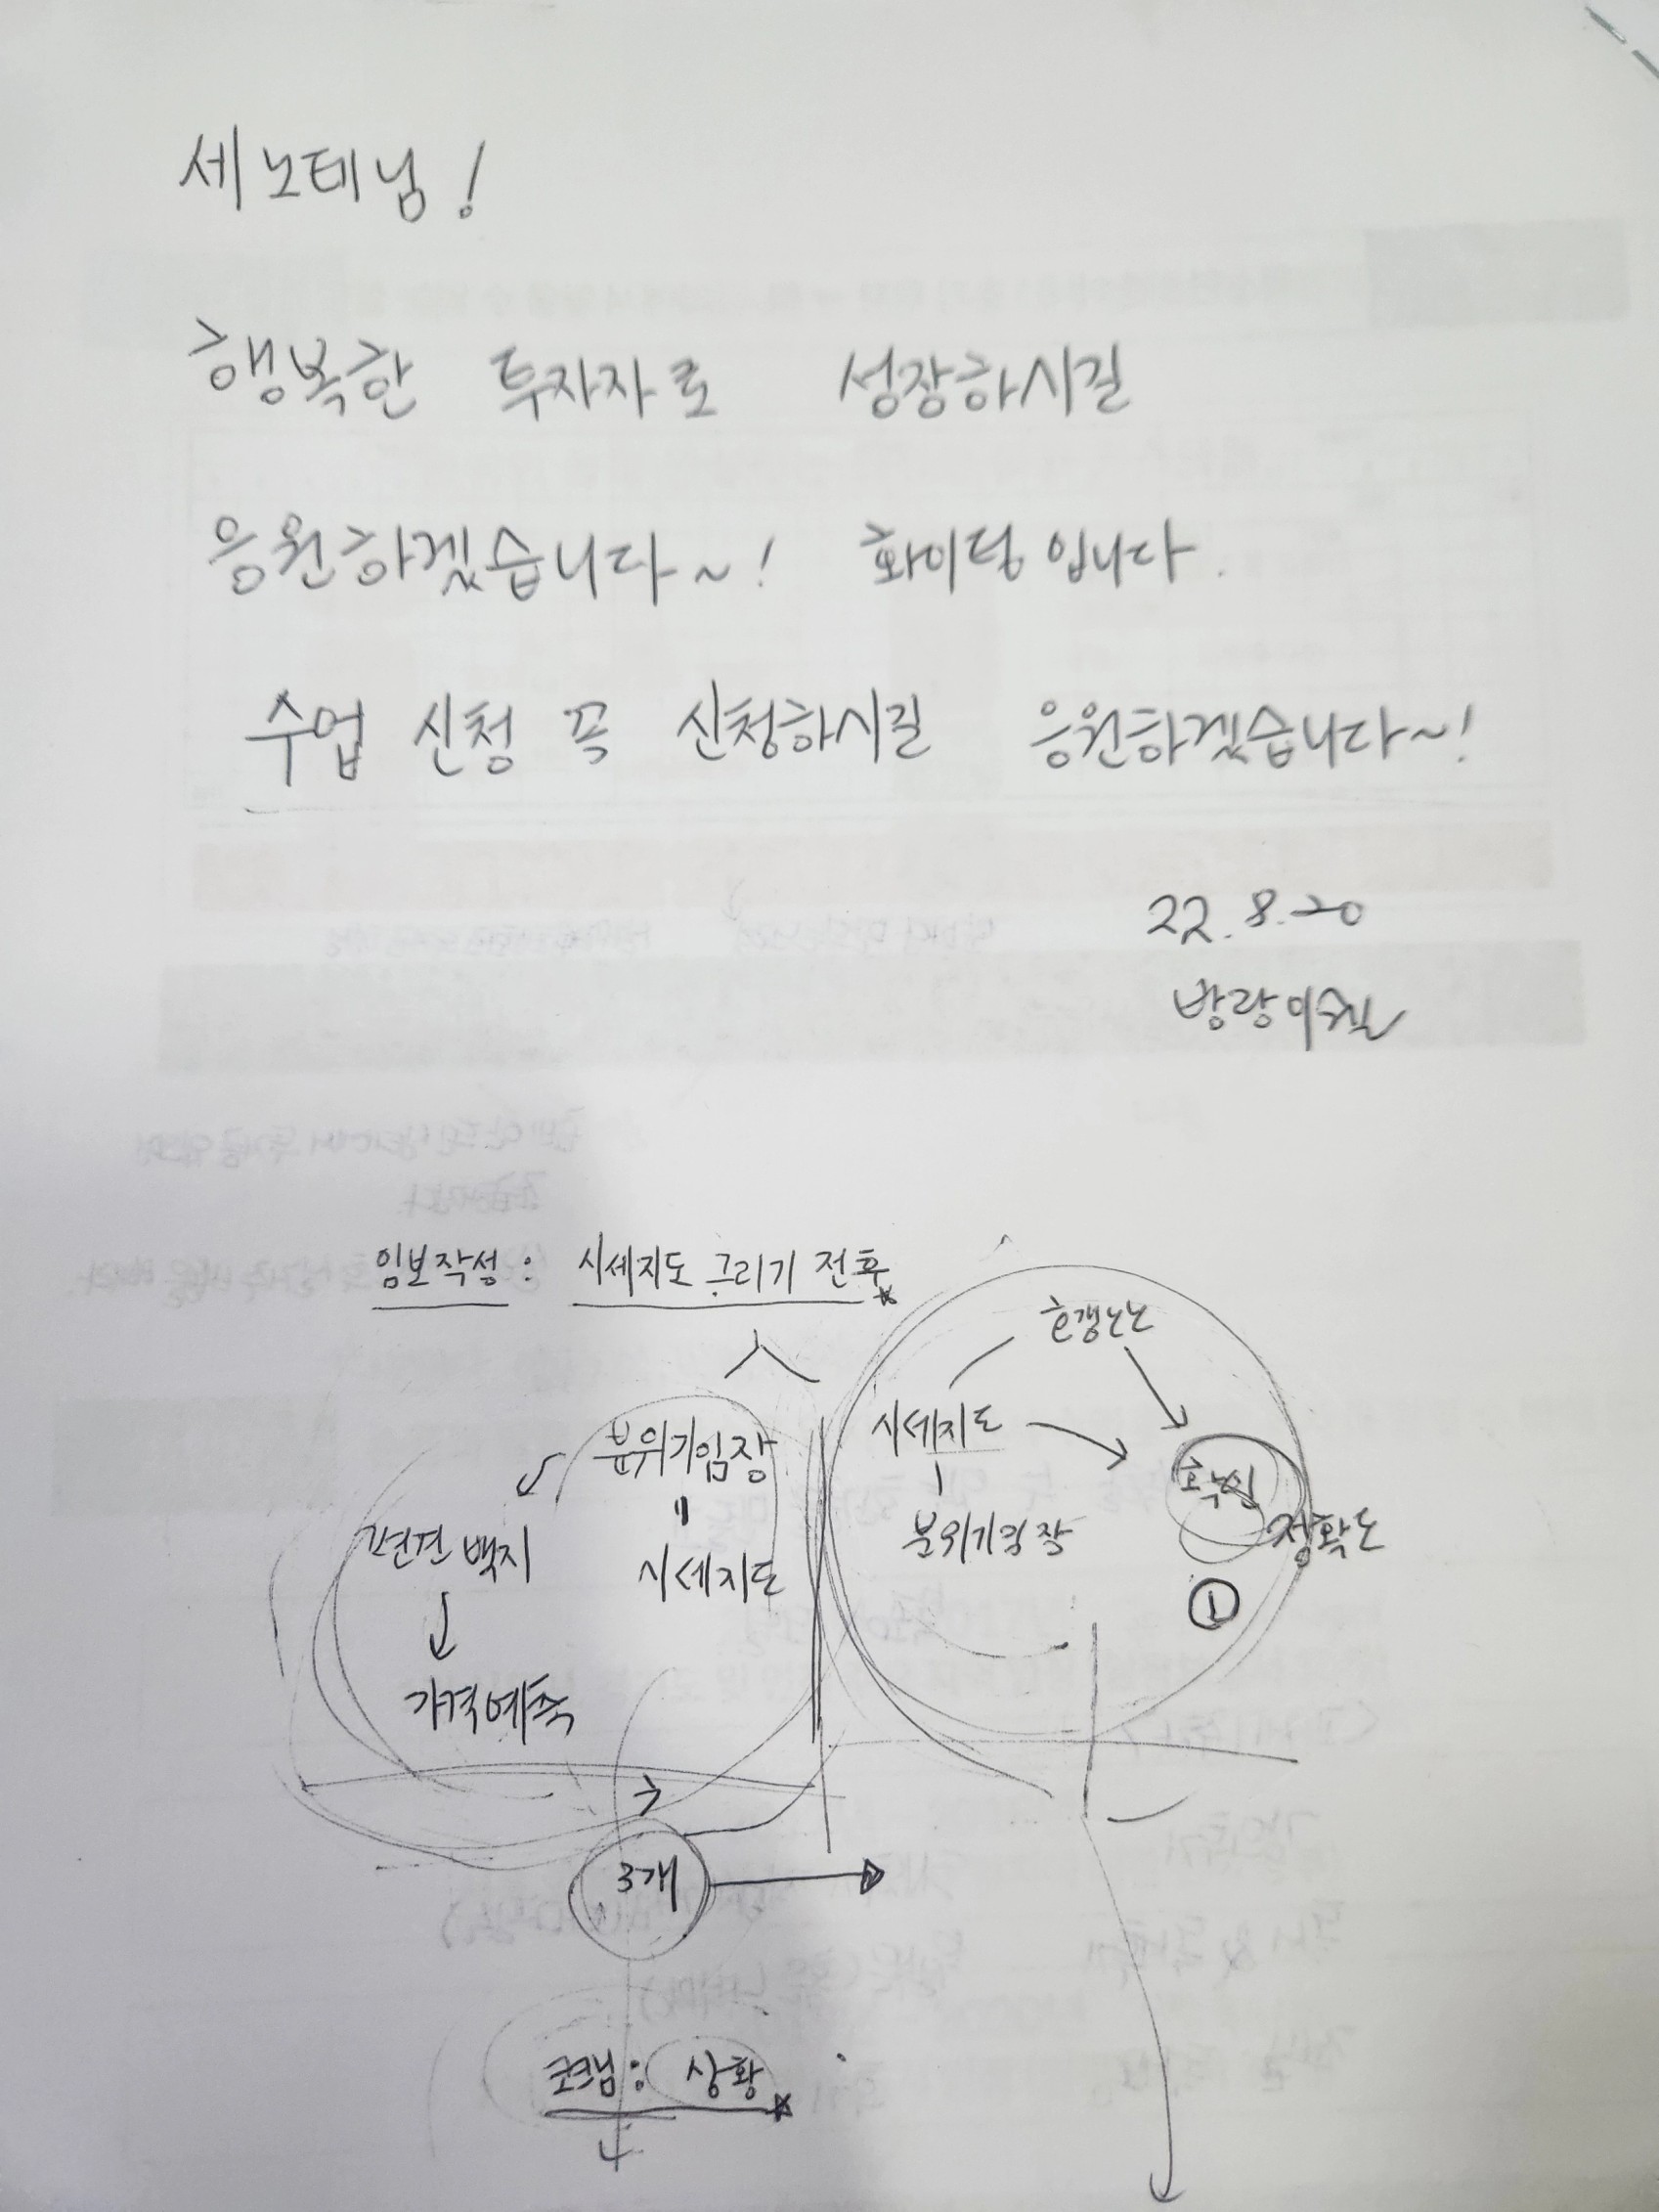 세노테님!
행복한 투자자로 성장하시길
응원하겠습니다~! 화이팅입니다.
수업 신청 꼭 신청하시길 응원하겠습니다~!
22.8.20
임보작성: 시세지도 그리기 전후
호갱노노
분위기임장
시세지도
시세지도
확인
정확도
분위기임장
백지
①
가격예측
3개
코크님: 상황